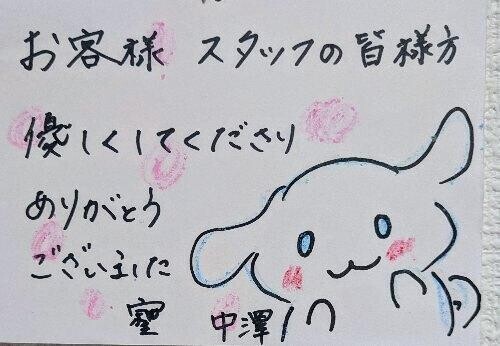 お客様 スタッフの皆様方
優しくしてくださり
ありがとう
ございました
中澤